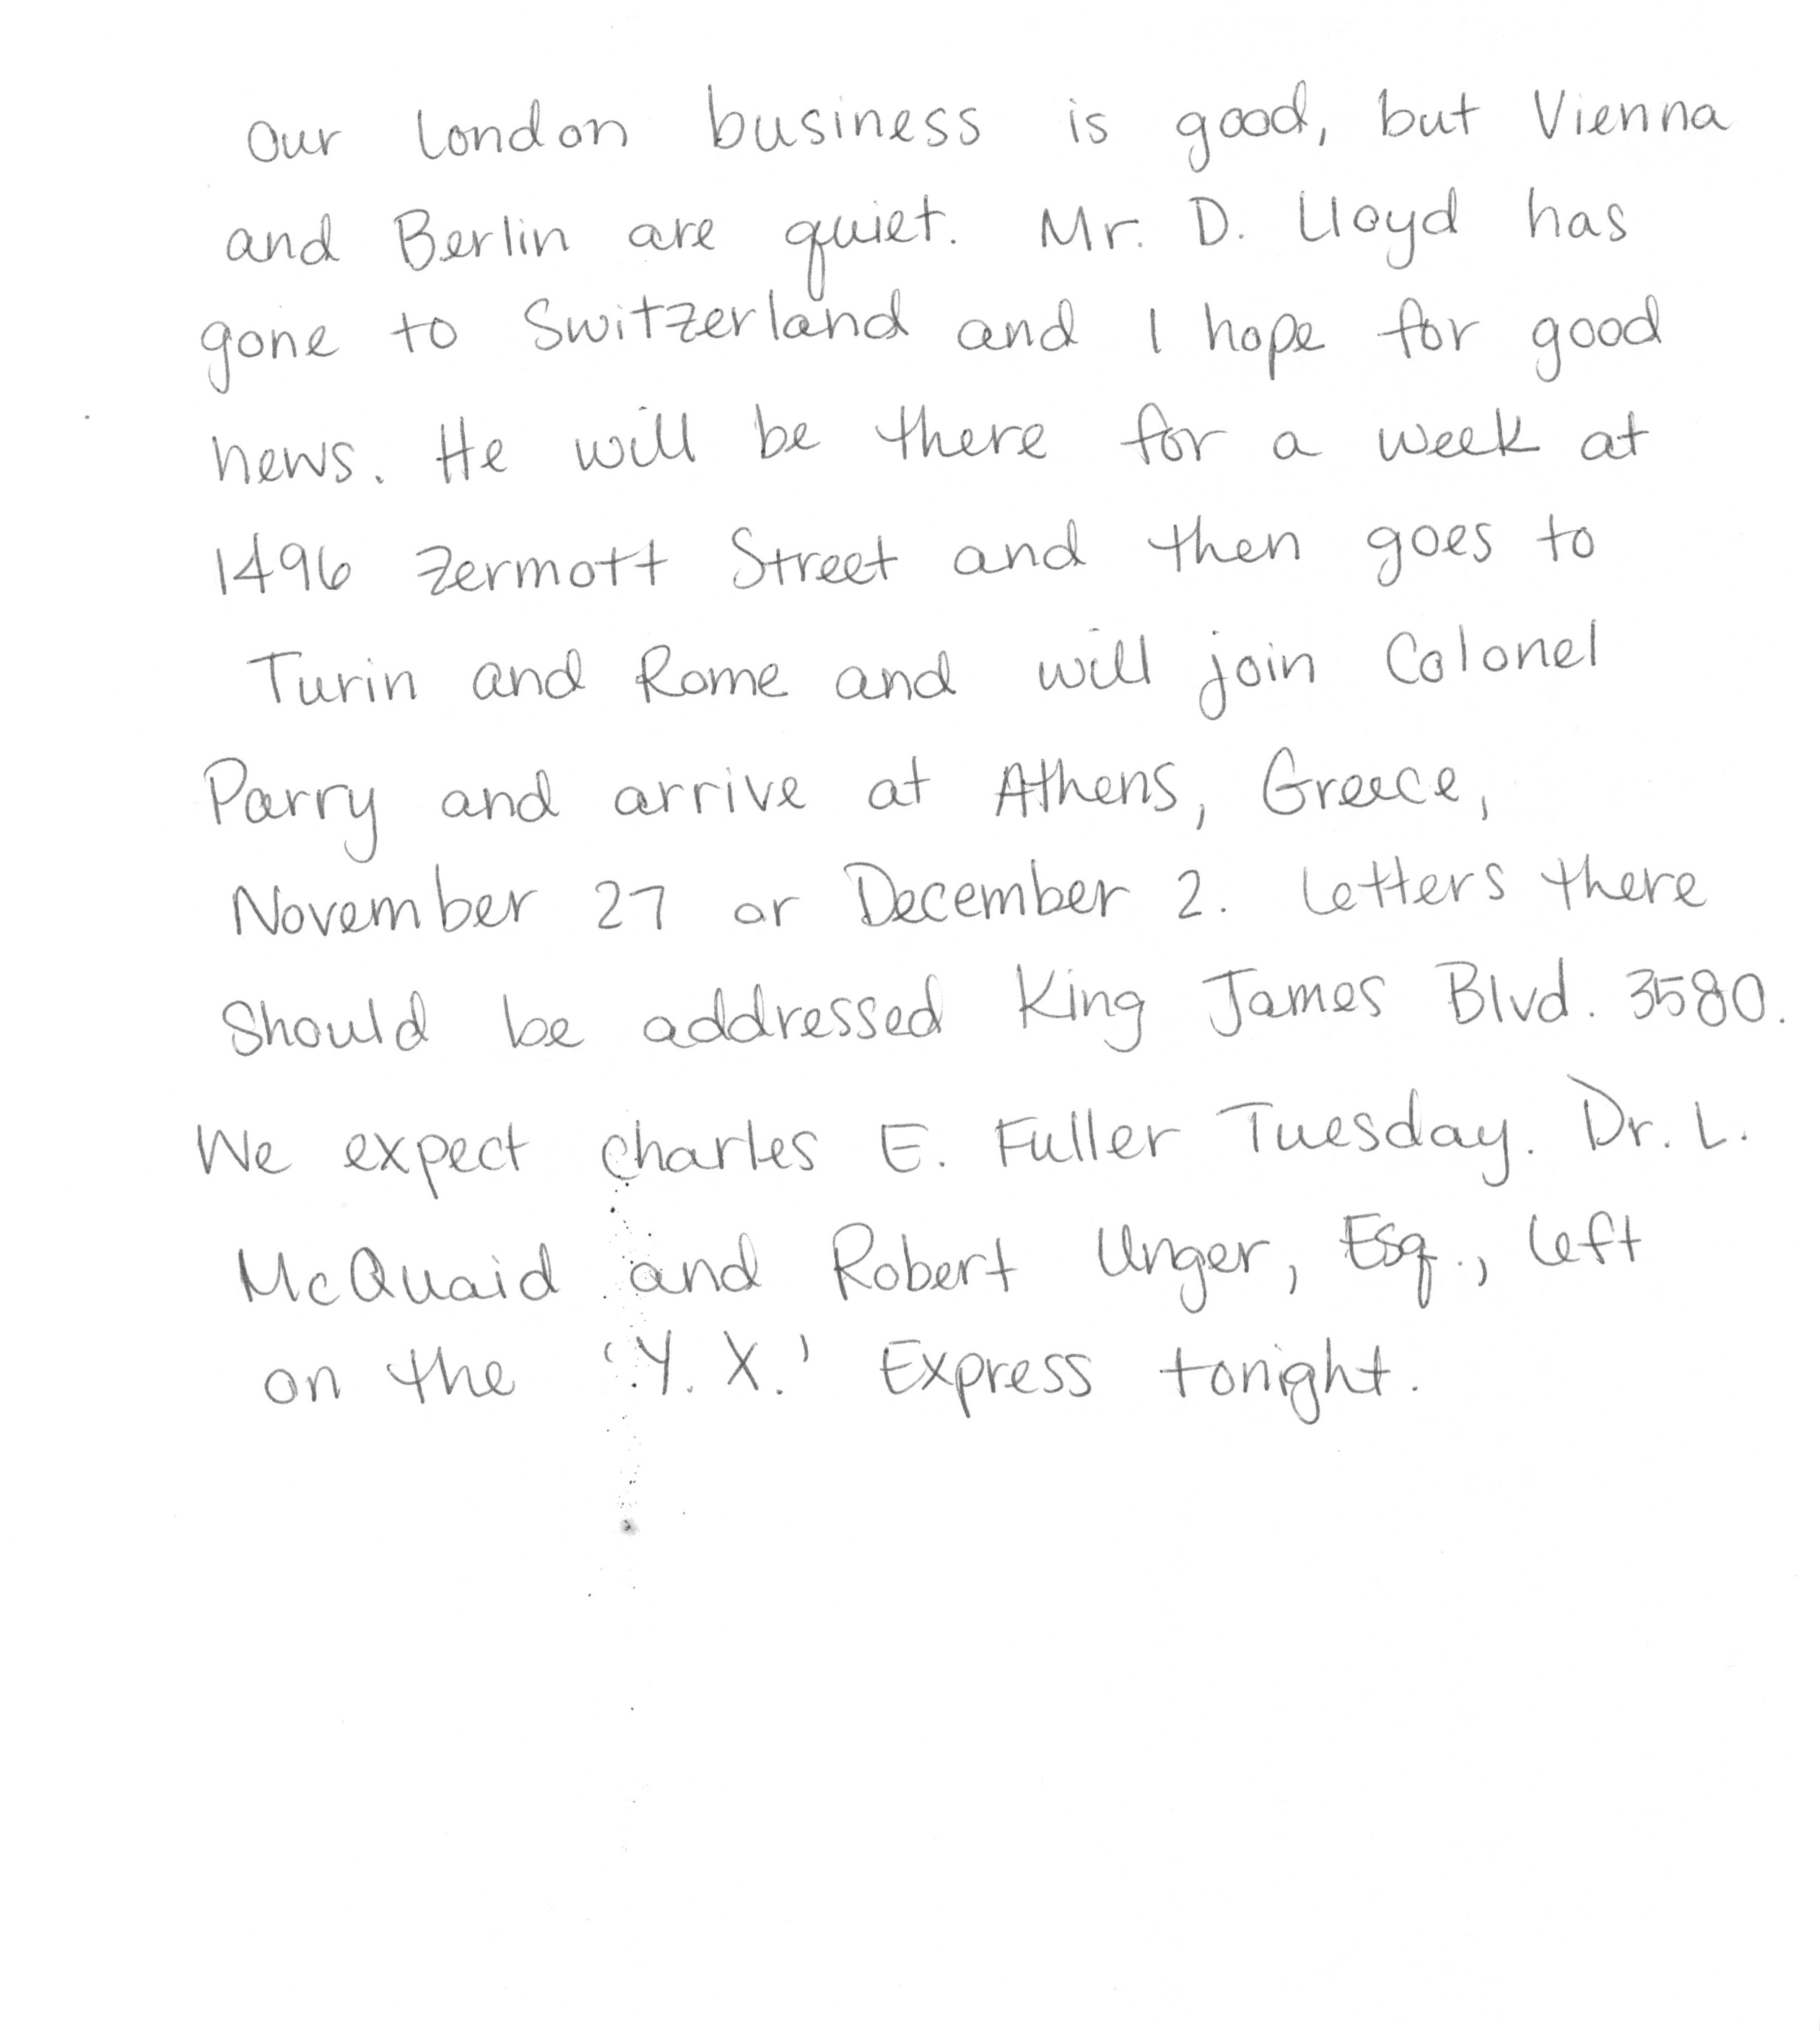 Our London business is good, but Vienna
and Berlin are quiet. Mr. D. Lloyd has
gone to Switzerland and I hope for good
news. He will be there for a week at
1496 Zermott Street and then goes to
Turin and Rome and will join Colonel
Parry and arrive at Athens, Greece,
November 27 or December 2. Letters there
Should be addressed King James Blvd. 3580.
We expect Charles E. Fuller Tuesday. Dr. L.
McQuaid and Robert Unger, Esq., left
on the 'Y. X.' Express tonight.